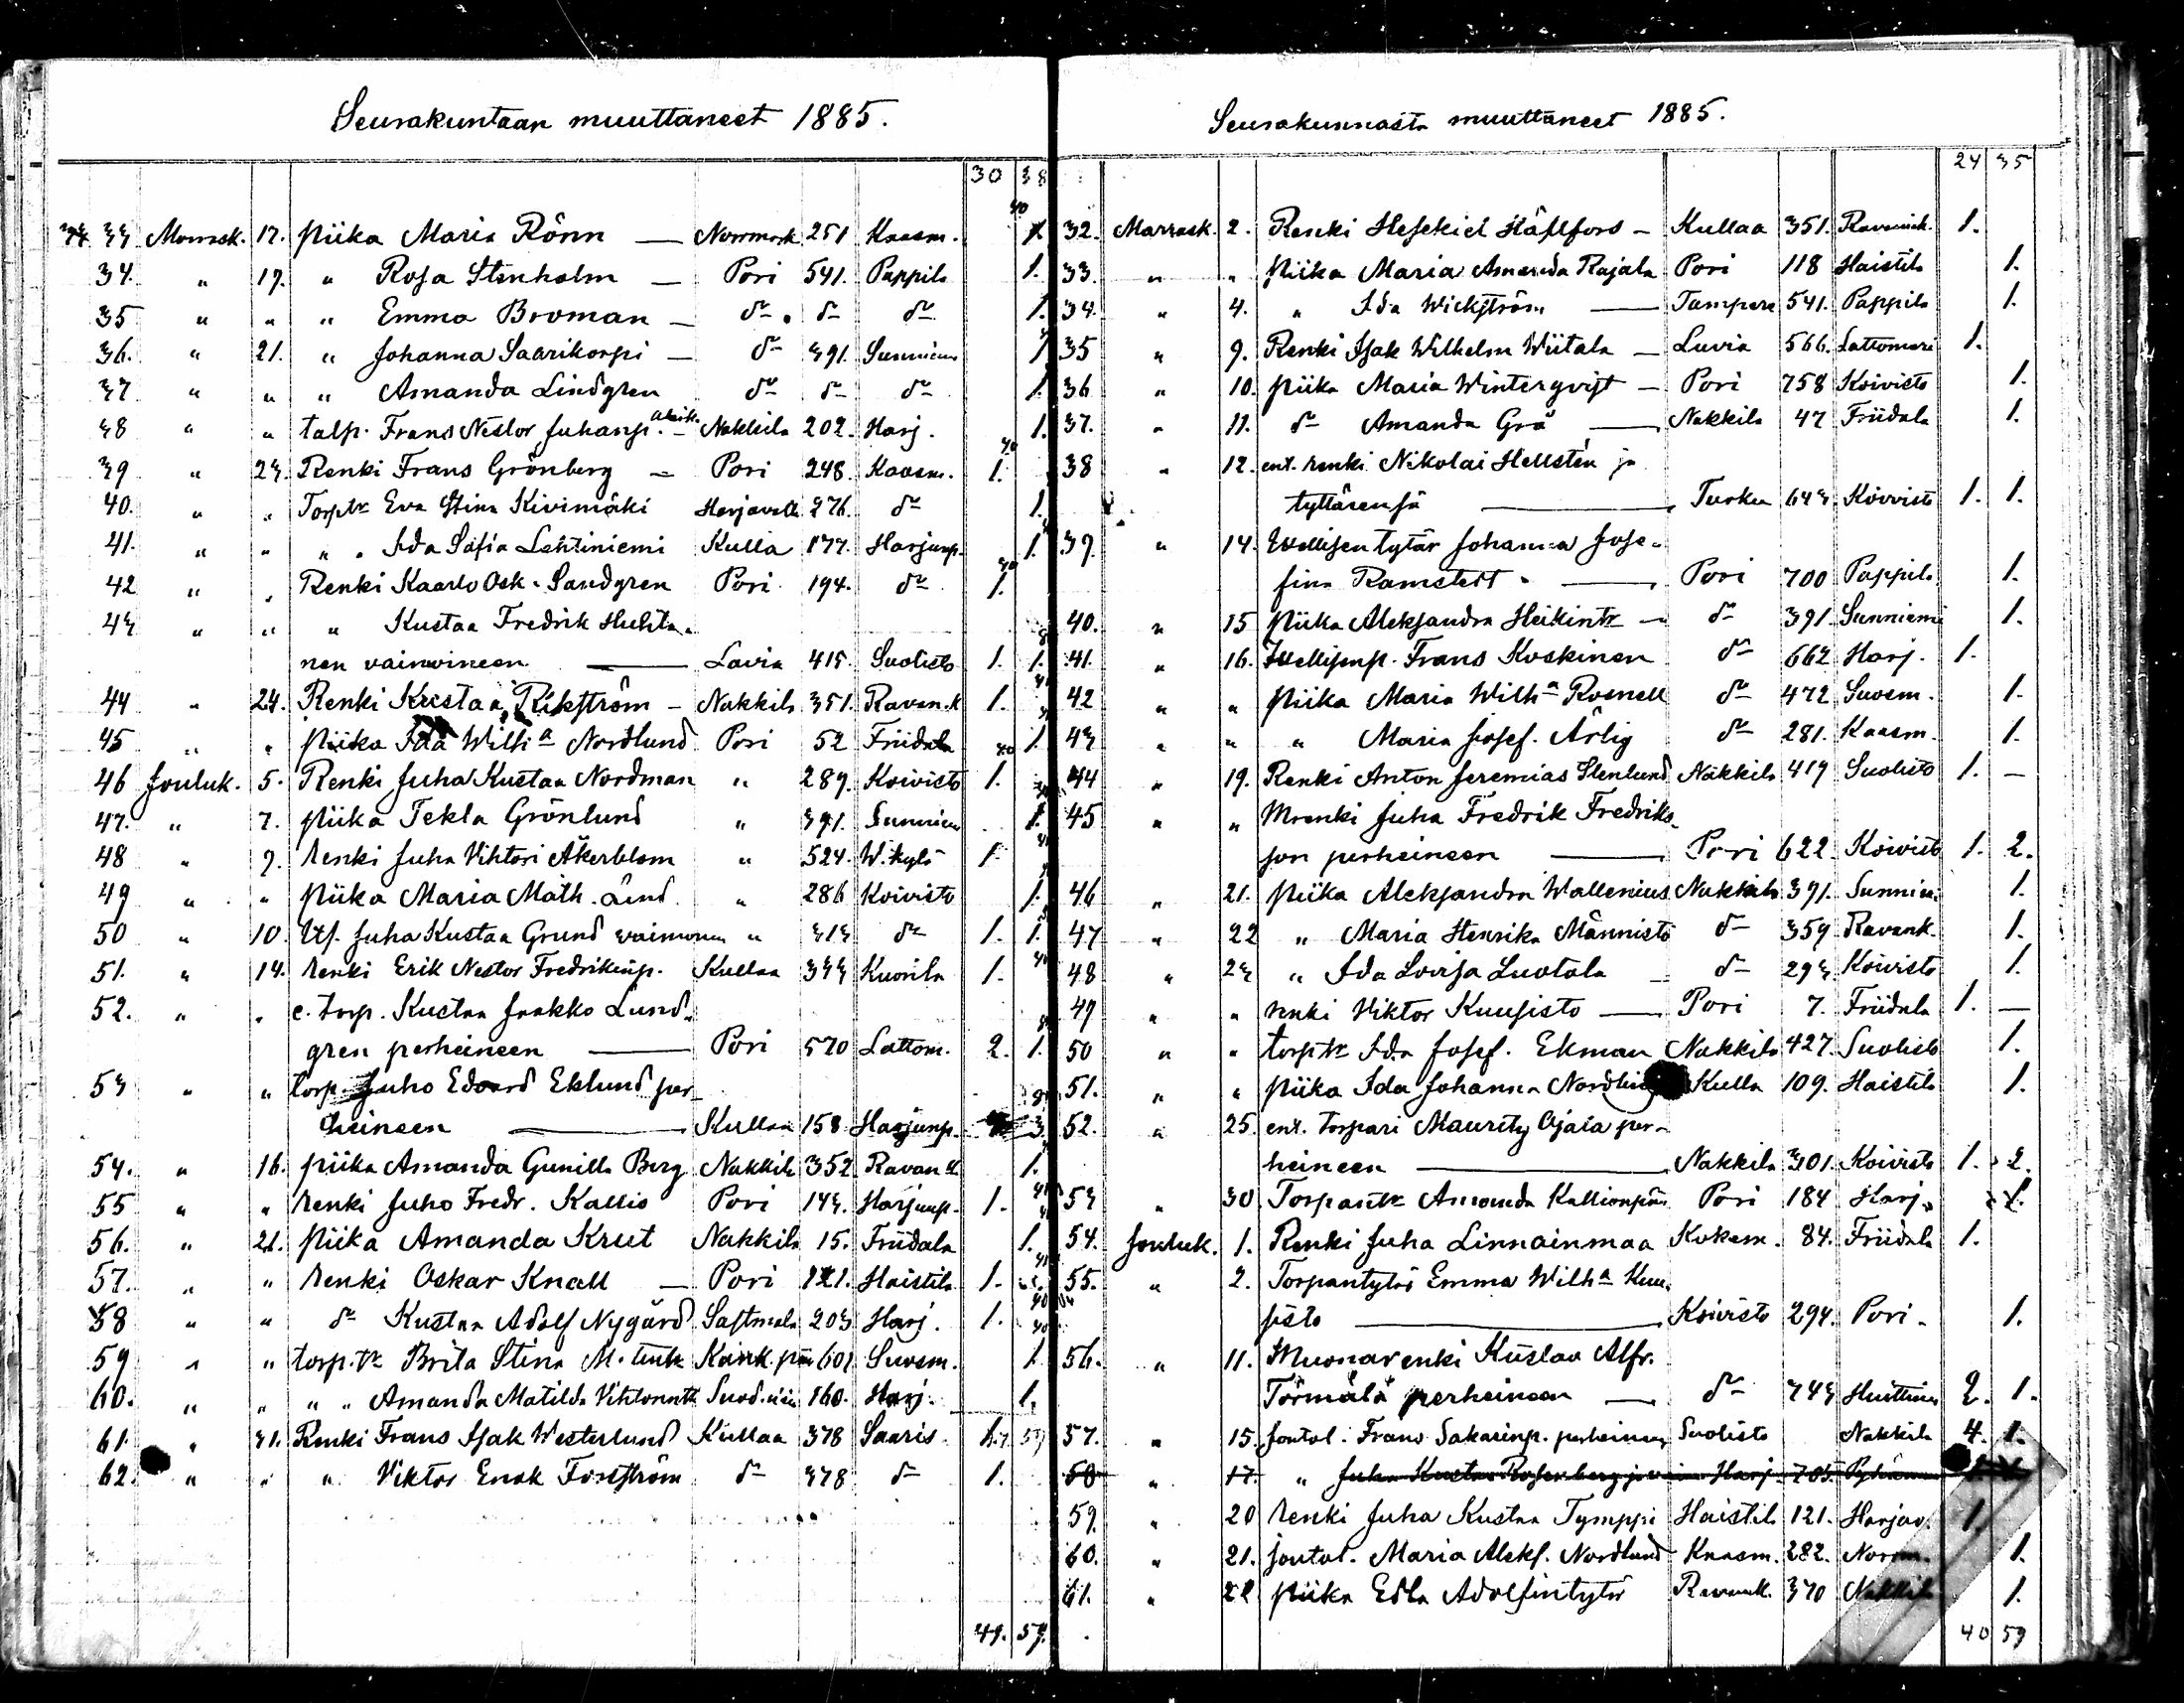 Seurakuntaan muuttaneet 1885.
30 38
33 Marrask. 17. Piika Maria Rönn — Norrmark 251 Kaasm. 1.
34. " 17. " Rosa Stenholm — Pori 541. Pappila 1.
35 " " " Emma Broman — d:o d:o d:o 1.
36. " 21. " Johanna Saarikorpi — d:o 391. Sunniemi 1
37 " " " Amanda Lindgren d:o d:o d:o 1.
38 " " talp. Frans Nestor Juhanp. — Nakkila 202. Harj. 1.
39 " 23. Renki Frans Grönberg — Pori 248. Kaasm. 1.
40. " " Torp.tr Eva Stina Kivimäki Harjavalta 276. d:o 1.
41. " " " " Ida Sofia Lehtiniemi Kulla 177. Harjunp. 1.
42 " " Renki Kaarlo Osk. Sandgren Pori 194. d:o 1.
43 " " " Kustaa Fredrik Huhta-
nen vaimoineen — Lavia 415. Suolisto 1. 1.
44 " 24. Renki Kustaa Rikström — Nakkila 351. Ravan.k 1.
45 " " Piika Ida Wilh:a Nordlund Pori 52 Friidala 1.
46 Jouluk. 5. Renki Juha Kustaa Nordman " 289. Koivisto 1.
47. " 7. Piika Tekla Grönlund " 391. Sunniemi 1.
48 " 9. Renki Juha Vihtori Åkerblom " 524. W.kylä 1.
49 " " Piika Maria Math. Lind " 286 Koivisto 1.
50 " 10. Itf. Juha Kustaa Grund vaimoineen " 313 d:o 1. 1.
51. " 14. Renki Erik Nestor Fredrikinp. Kullaa 333 Kuorila 1.
52. " " e. torp. Kustaa Jaakko Lund-
gren perheineen — Pori 570 Lattom. 2. 1.
53 " " torp. Juho Edvard Eklund per-
heineen — Kullaa 158 Harjunp. 3.
54. " 16. Piika Amanda Gunilla Berg Nakkila 352 Ravan.k 1.
55 " " Renki Juho Fredr. Kallio Pori 143. Harjunp. 1.
56. " 21. Piika Amanda Krut Nakkila 15. Friidala 1.
57. " " Renki Oskar Knall — Pori 121. Haistila 1.
58 " " d:o Kustaa Adolf Nygård Sastmala 203 Harj. 1.
59 " " torp.tr Brita Stina M. tink 601 Suosm. 1.
60. " " " " Amanda Matilda Vihtorintr 160. Harj. 1.
61. " 31. Renki Frans Isak Westerlund Kullaa 378 Saaris. 1.
62. " " " Viktor Enok Forsström d:o 378 d:o 1.
41. 59.
Seurakunnasta muuttaneet 1885.
24 35
32. Marrask. 2. Renki Hesekiel Hällfors — Kullaa 351. Ravanink. 1.
33. " " Piika Maria Amanda Rajala Pori 118 Haistila 1.
34. " 4. " Ida Wickström — Tampere 541. Pappila 1.
35 " 9. Renki Isak Wilhelm Wiitala — Luvia 566. Lattomeri 1.
36 " 10. Piika Maria Winterqvist — Pori 758 Koivisto 1.
37. " 11. d:o Amanda Grå — Nakkila 47 Friidala 1.
38 " 12. ent. renki Nikolai Hellstén ja
tyttärensä — Turku 643. Koivisto 1. 1.
39. " 14. Itsellisen tytär Johanna Jose-
fina Ramstedt — Pori 700 Pappila 1.
40. " 15 Piika Aleksandra Heikintr — d:o 391. Sunniemi 1.
41. " 16. Itsellisenp. Frans Koskinen d:o 662 Harj. 1.
42 " " Piika Maria Wilh:a Rosnell d:o 472 Suosm. 1.
43 " " " Maria Josef. Ärlig d:o 281. Kaasm. 1.
44 " 19. Renki Anton Jeremias Stenlund Nakkila 419 Suolisto 1. —
45 " " Mrenki Juha Fredrik Fredriks-
son perheineen — Pori 622. Koivisto 1. 2.
46 " 21. Piika Aleksandra Wallenius Nakkila 391. Sunniemi 1.
47 " 22 " Maria Henrika Männistö d:o 359 Ravank. 1.
48 " 23 " Ida Lovisa Luotola — d:o 293 Koivisto 1.
49 " " renki Viktor Kuusisto — Pori 7. Friidala 1. —
50 " " torp.tr Ida Josef. Ekman Nakkila 427. Suolisto 1.
51. " " Piika Ida Johanna Kulla 109. Haistila 1.
52. " 25. ent. torpari Mauritz Ojala per-
heineen — Nakkila 301. Koivisto 1. 2.
53 " 30 Torpantr Amanda Kallionpää Pori 184 Harj. 1.
54. Jouluk. 1. Renki Juha Linnainmaa Kokem. 84. Friidala 1.
55. " 2. Torpantytär Emma Wilh:a Kuu-
sisto — Koivisto 294. Pori. 1.
56. " 11. Muonarenki Kustaa Alfr.
Törmälä perheineen — d:o 743 Huittinen 2. 1.
57. " 15. joutol. Frans Sakarinp. perheineen Suolisto Nakkila 4. 1.
58 " 17. " Juha Kustaa Rosenberg ja vaimo Harj. 705.
59. " 20 renki Juha Kustaa Tymppi Haistila 121. Harjav. 1.
60. " 21. joutol. Maria Aleks. Nordlund Kaasm. 282. Norrm. 1.
61. " 22 Piika Edla Adolfintytär Ravank. 370 Nakkila 1.
40 59